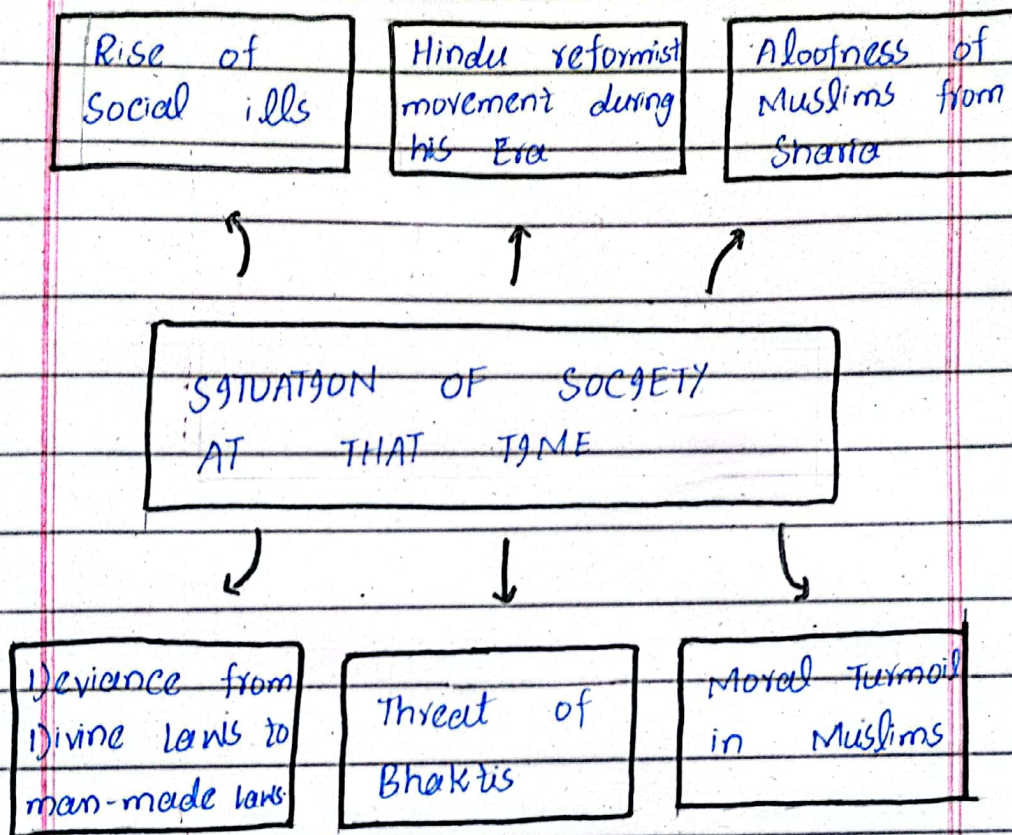 Rise of
Social ills
Hindu reformist
movement during
his Era
Aloofness of
Muslims from
Sharia
SITUATION OF SOCIETY
AT THAT TIME
Deviance from
Divine Laws to
man-made laws.
Threat of
Bhaktis
Moral Turmoil
in Muslims